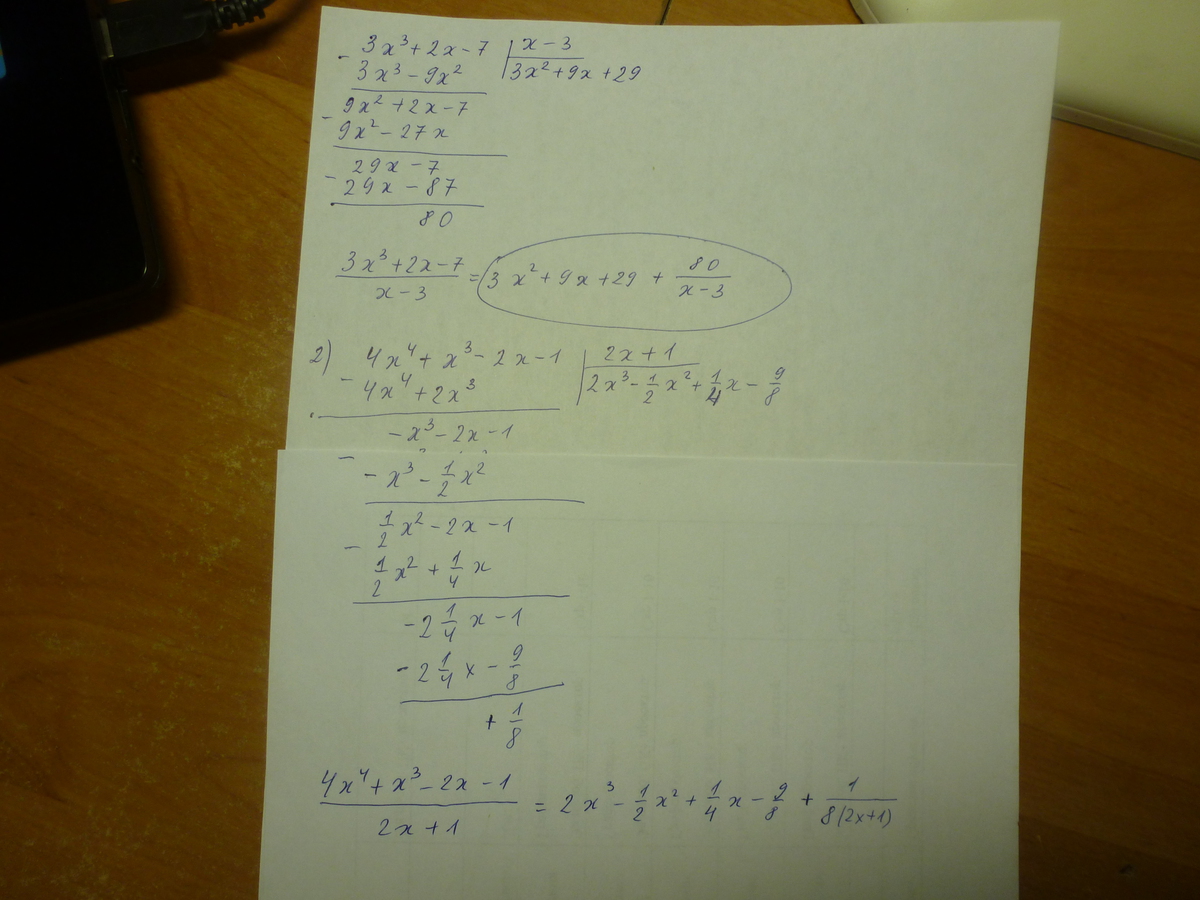 - 3x³+2x-7 | x-3
3x³-9x² | 3x²+9x+29
- 9x²+2x-7
9x²-27x
- 29x-7
29x-87
80
(3x³+2x-7)/(x-3) = 3x²+9x+29 + 80/(x-3)
2) - 4x⁴+x³-2x-1 | 2x+1
4x⁴+2x³ | 2x³-1/2x²+1/4x-9/8
- -x³-2x-1
-x³-1/2x²
- 1/2x²-2x-1
1/2x²+1/4x
-2 1/4 x-1
-2 1/4 x-9/8
+1/8
(4x⁴+x³-2x-1)/(2x+1) = 2x³-1/2x²+1/4x-9/8+1/(8(2x+1))